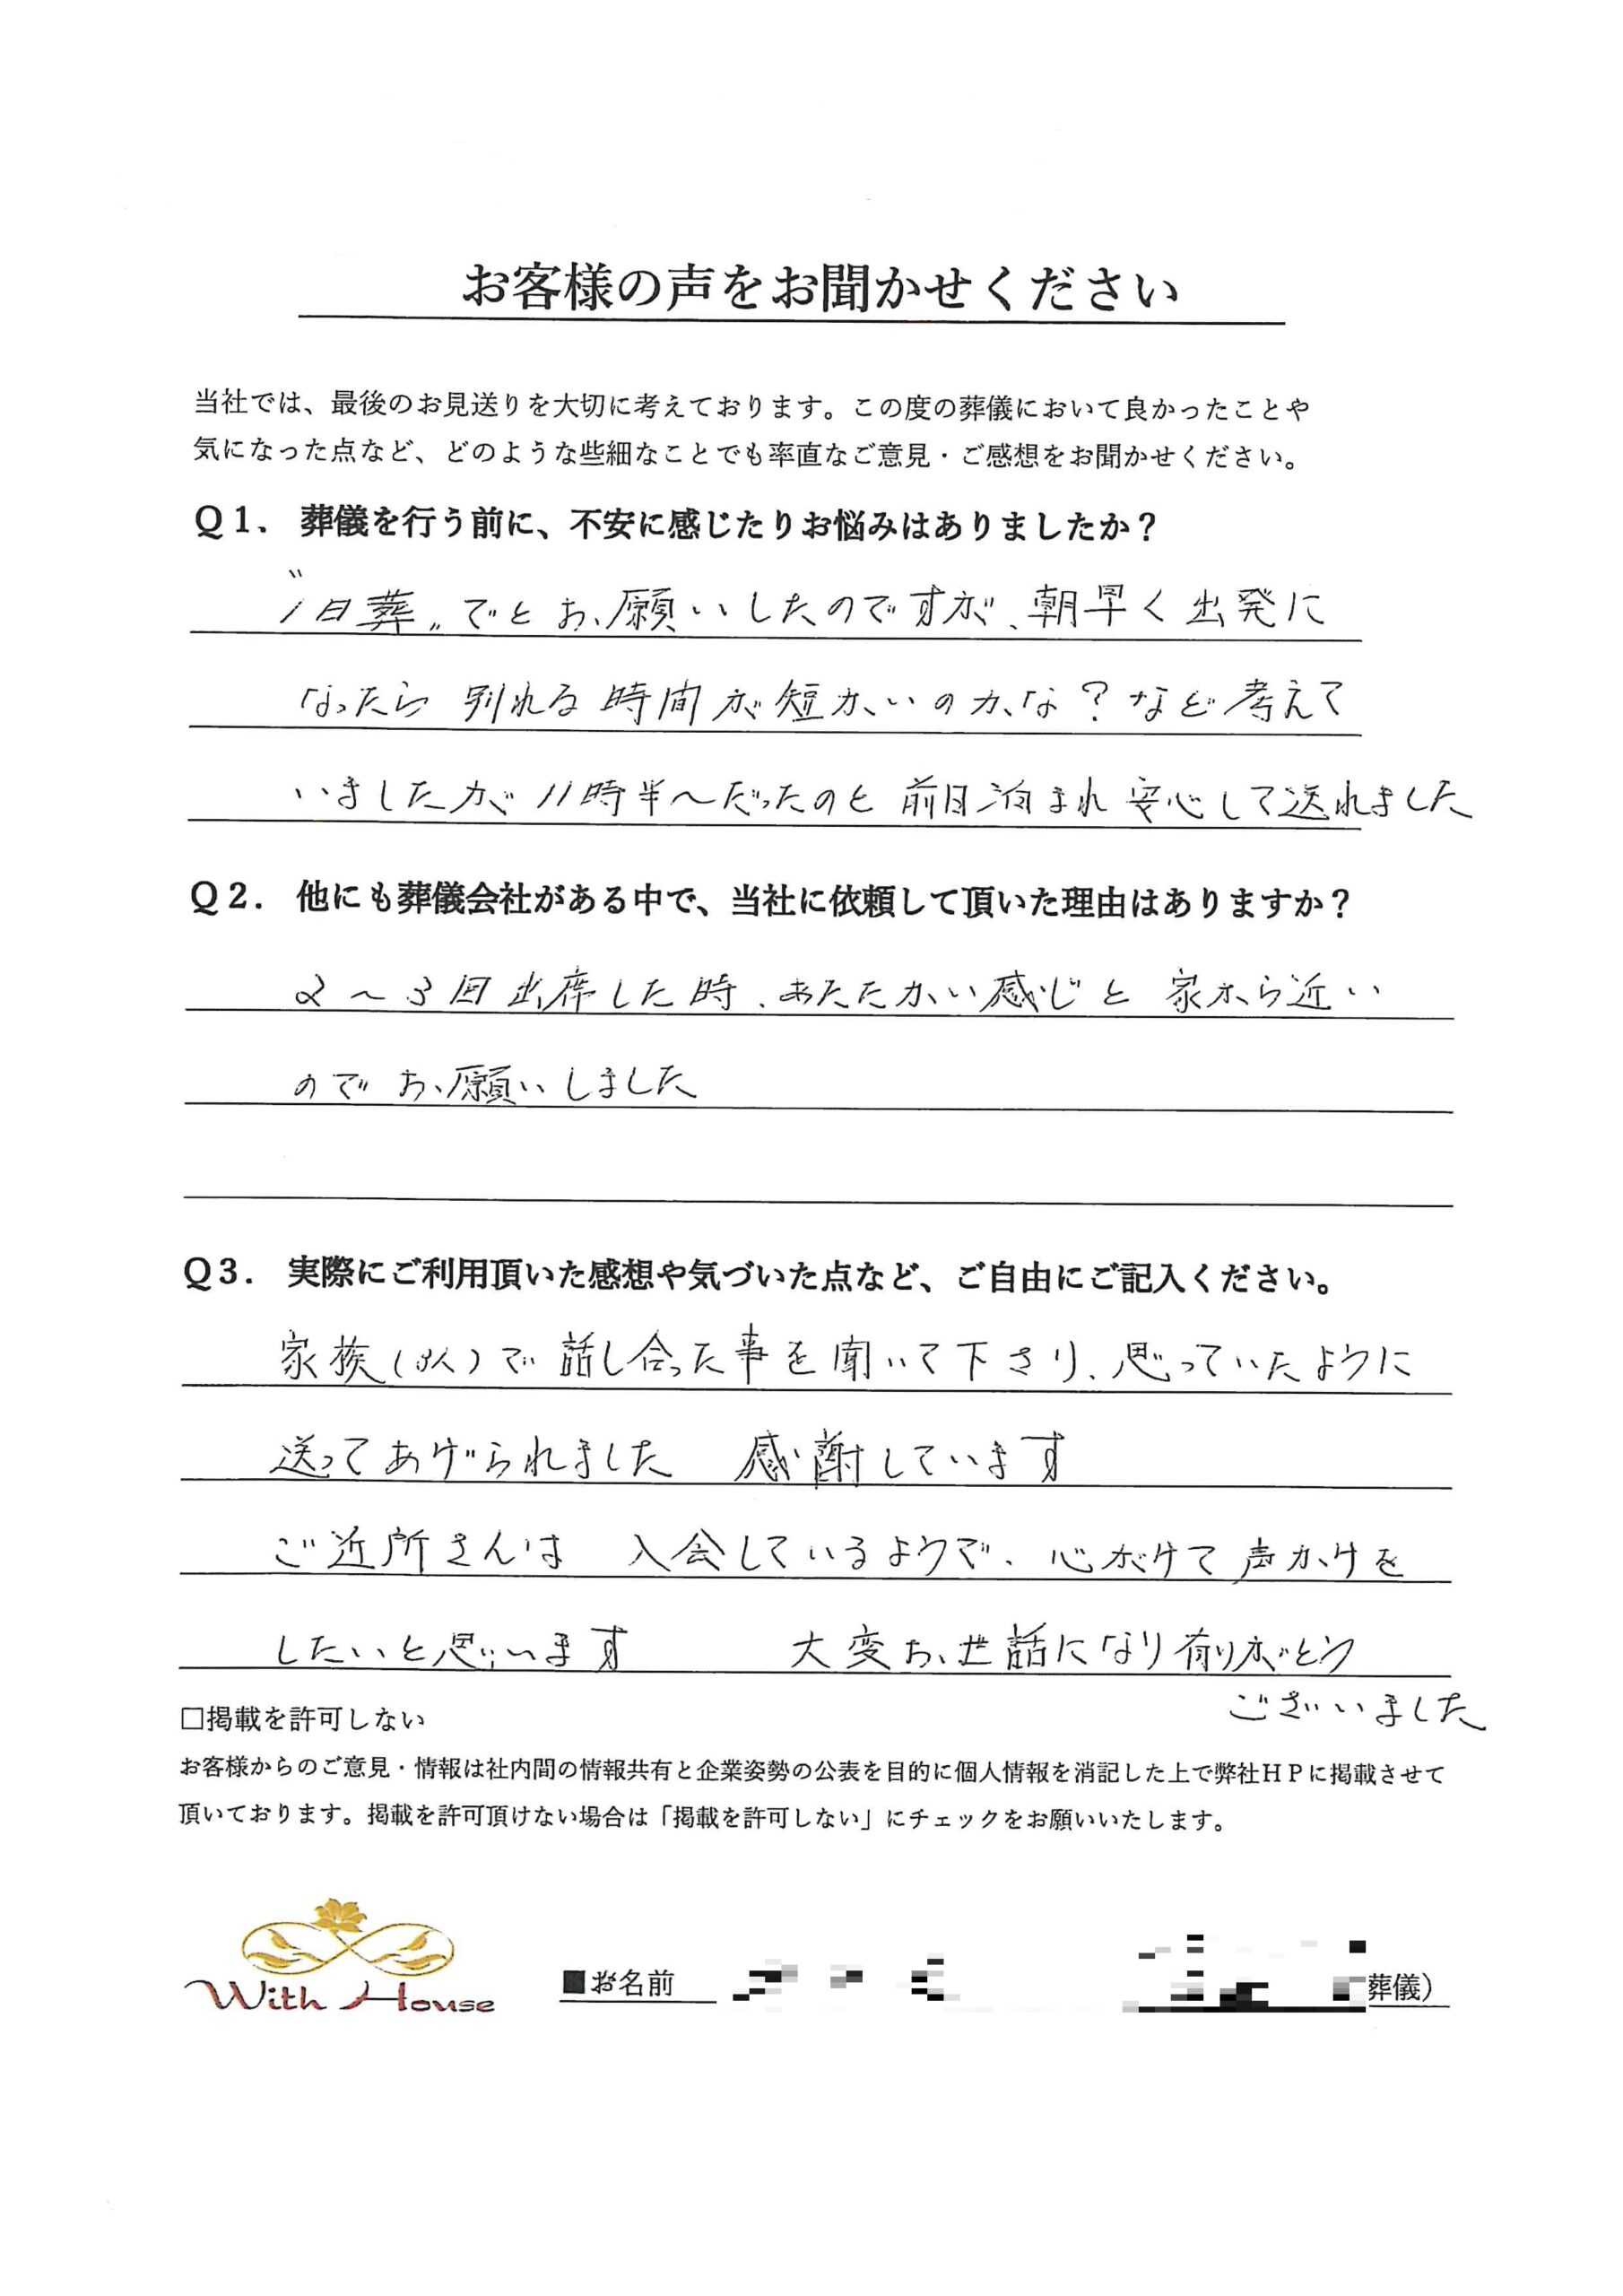 お客様の声をお聞かせください
当社では、最後のお見送りを大切に考えております。この度の葬儀において良かったことや
気になった点など、どのような些細なことでも率直なご意見・ご感想をお聞かせください。
Q1. 葬儀を行う前に、不安に感じたりお悩みはありましたか？
〝1日葬〟でとお願いしたのですが、朝早く出発に
なったら 別れる時間が短かいのかな？など考えて
いましたが 11時半〜だったのと 前日泊まれ 安心して送れました
Q2. 他にも葬儀会社がある中で、当社に依頼して頂いた理由はありますか？
2〜3回出席した時、あたたかい感じと 家から近い
のでお願いしました
Q3. 実際にご利用頂いた感想や気づいた点など、ご自由にご記入ください。
家族(3人)で話し合った事を聞いて下さり、思っていたように
送ってあげられました 感謝しています
ご近所さんは 入会しているようで、心がけて声かけを
したいと思います 大変お世話になり有りがとう
ございました
□掲載を許可しない
お客様からのご意見・情報は社内間の情報共有と企業姿勢の公表を目的に個人情報を消記した上で弊社HPに掲載させて
頂いております。掲載を許可頂けない場合は「掲載を許可しない」にチェックをお願いいたします。
With House
■お名前 葬儀）